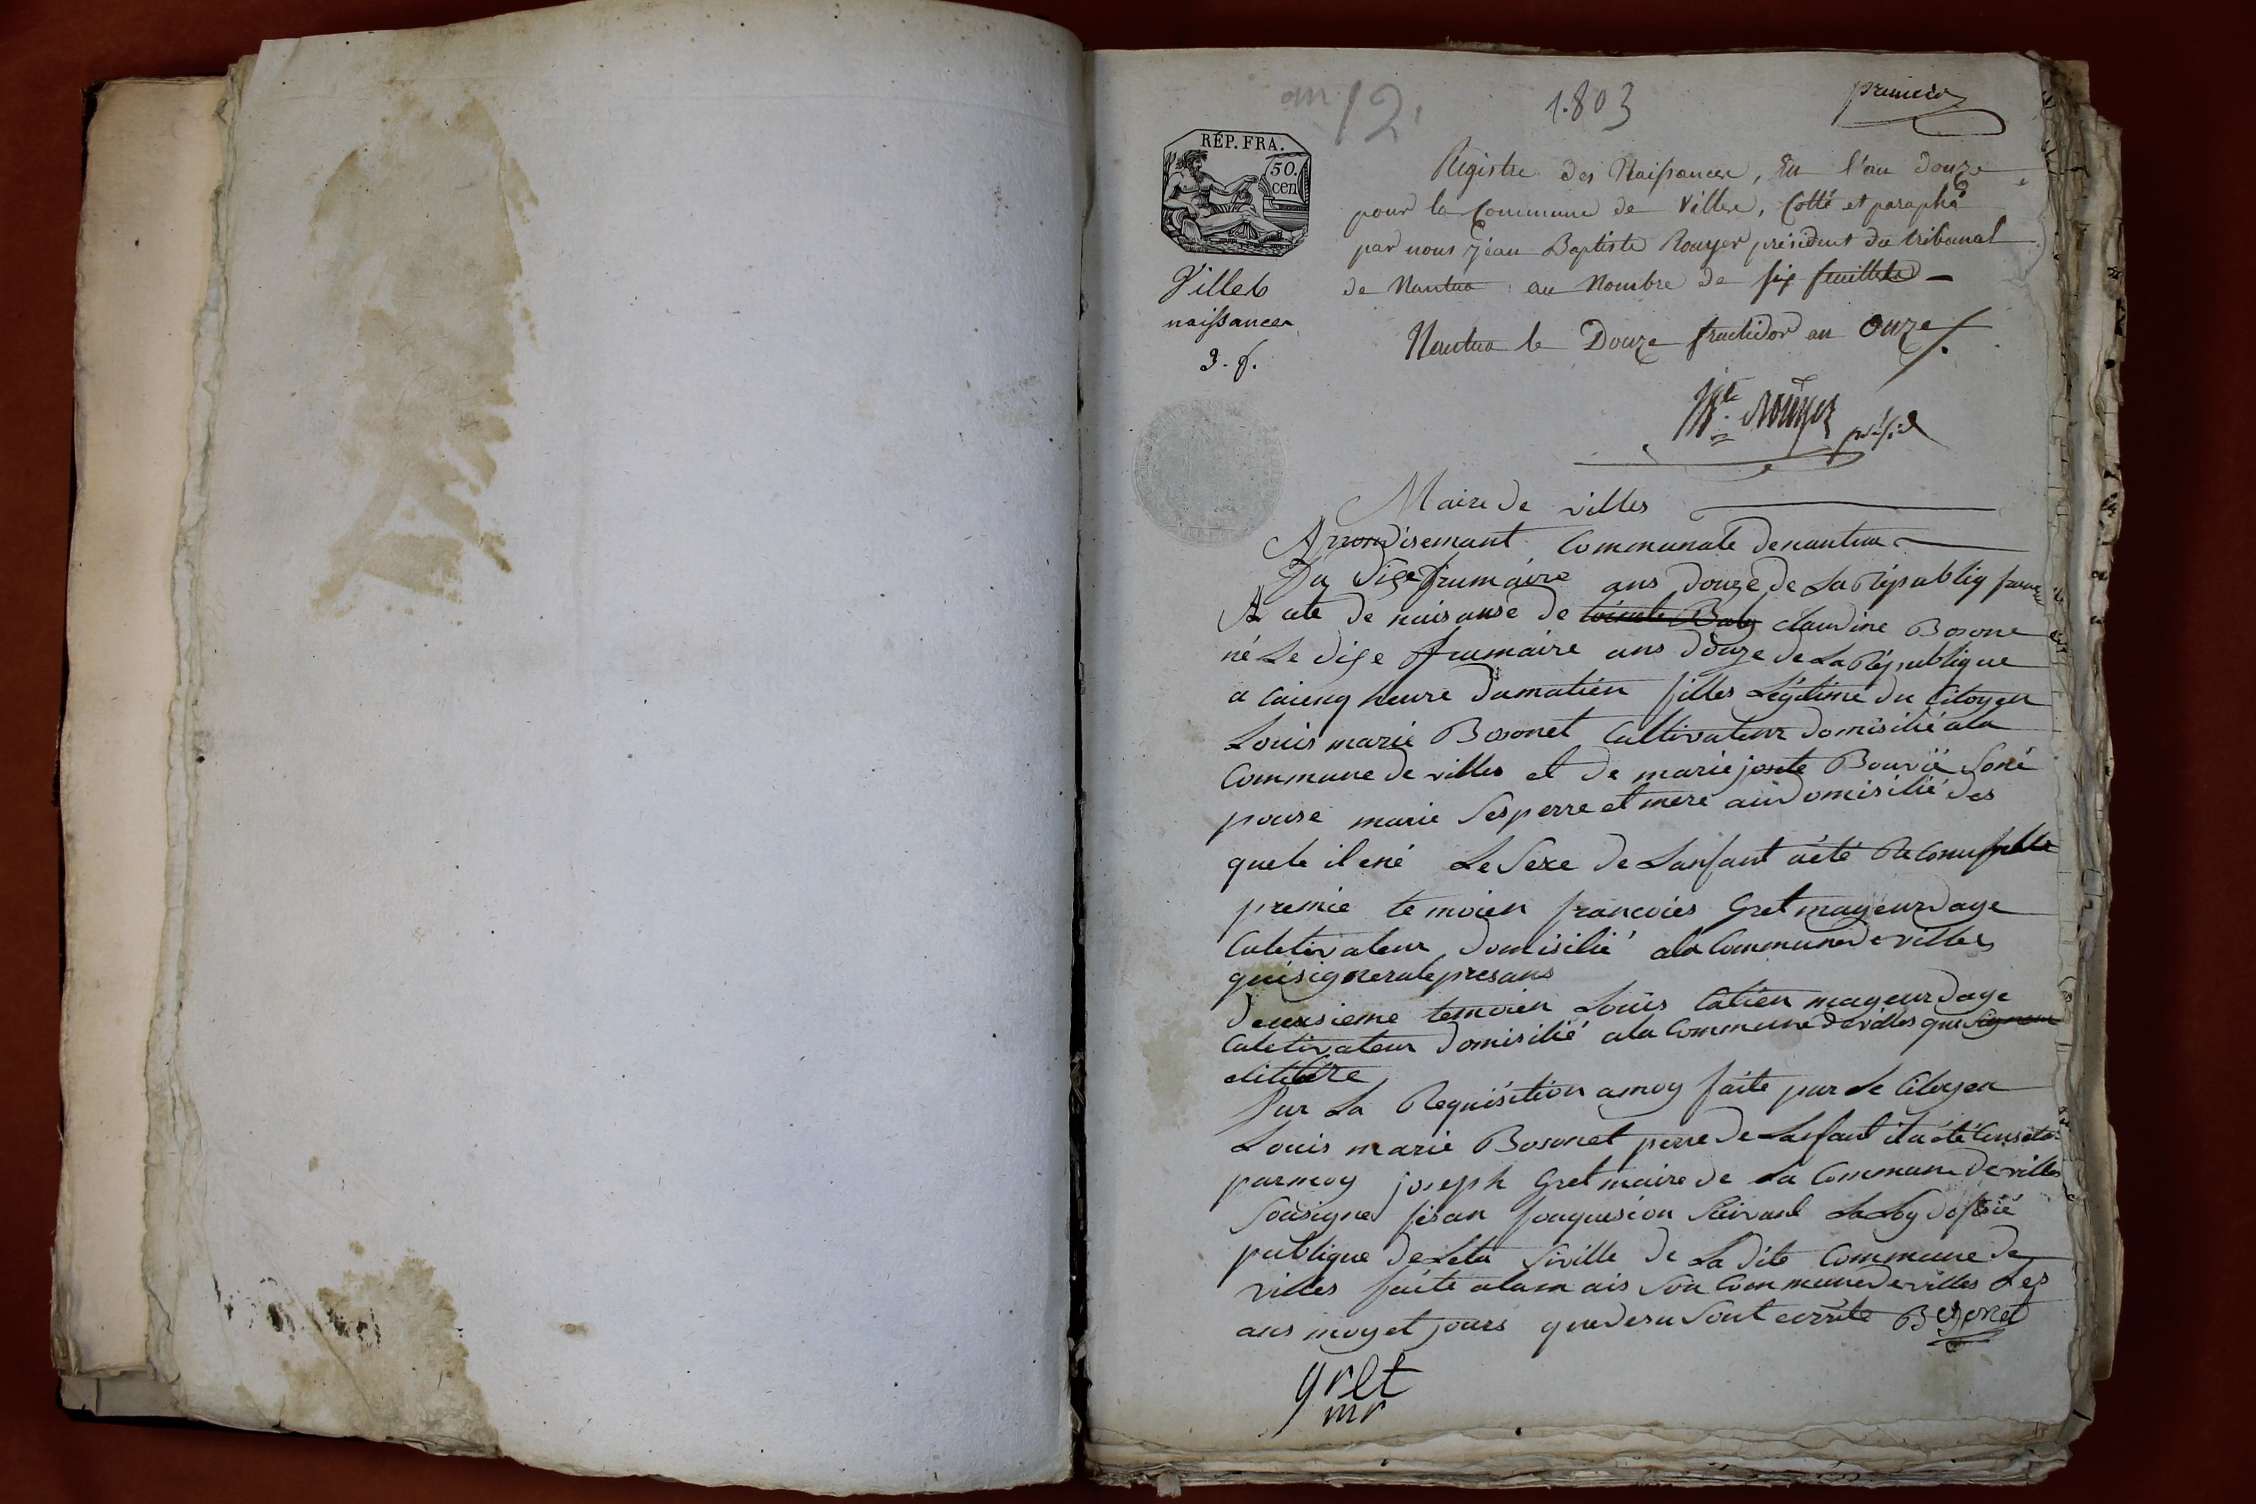 an 12.
1.803
premier
RÉP. FRA.
50.
cen
Villes
naissances
3. f.
Registre des Naissances, En l'an douze
pour la Commune de Villes, Cotté et paraphé
par nous Jean Baptiste Rouyer président du tribunal
de Nantua au Nombre de six feuillets
Nantua le Douze fructidor an Onze
Rouyer présid
Maire de villes
Arrondisemant Communale denantua
Du dixe frumaire ans douze de La Républiq
Acte de naisanse de Claudine Bosone
né Le dixe frumaire ans douze de La République
a Caienq heure dumatién filles Légitime du Citoyen
Louis marie Bosonet Cultivateur domisilié ala
Commune de villes et de marie joste Bouvié Soné
pouse marie Ses perre et mere aùi domisilié des
quele il ené Le Sexe de Lanfant aété Reconu fille
premie te moien francoies Gret mayeur dage
Culetivateur domisilié ala Commune de villes
qui signera le presans
deuxsieme temoien Louis Catien mayeur dage
Culetivateur domisilié ala Commune de villes que
elitére
Sur La Requisétion amoy faite par Le Citoyen
Louis marie Bosonet perre de Lanfant ila été
parmoy joseph Gret maire de La Commune de villes
Sousigne fésan fonquesion Suivant La Loy dofisié
publique de Leta Siville de La dite Commune de
villes faite alam ais Son Commune de villes Les
ans moy et jours que desu Sont ecrite Bosonet
gret
mr